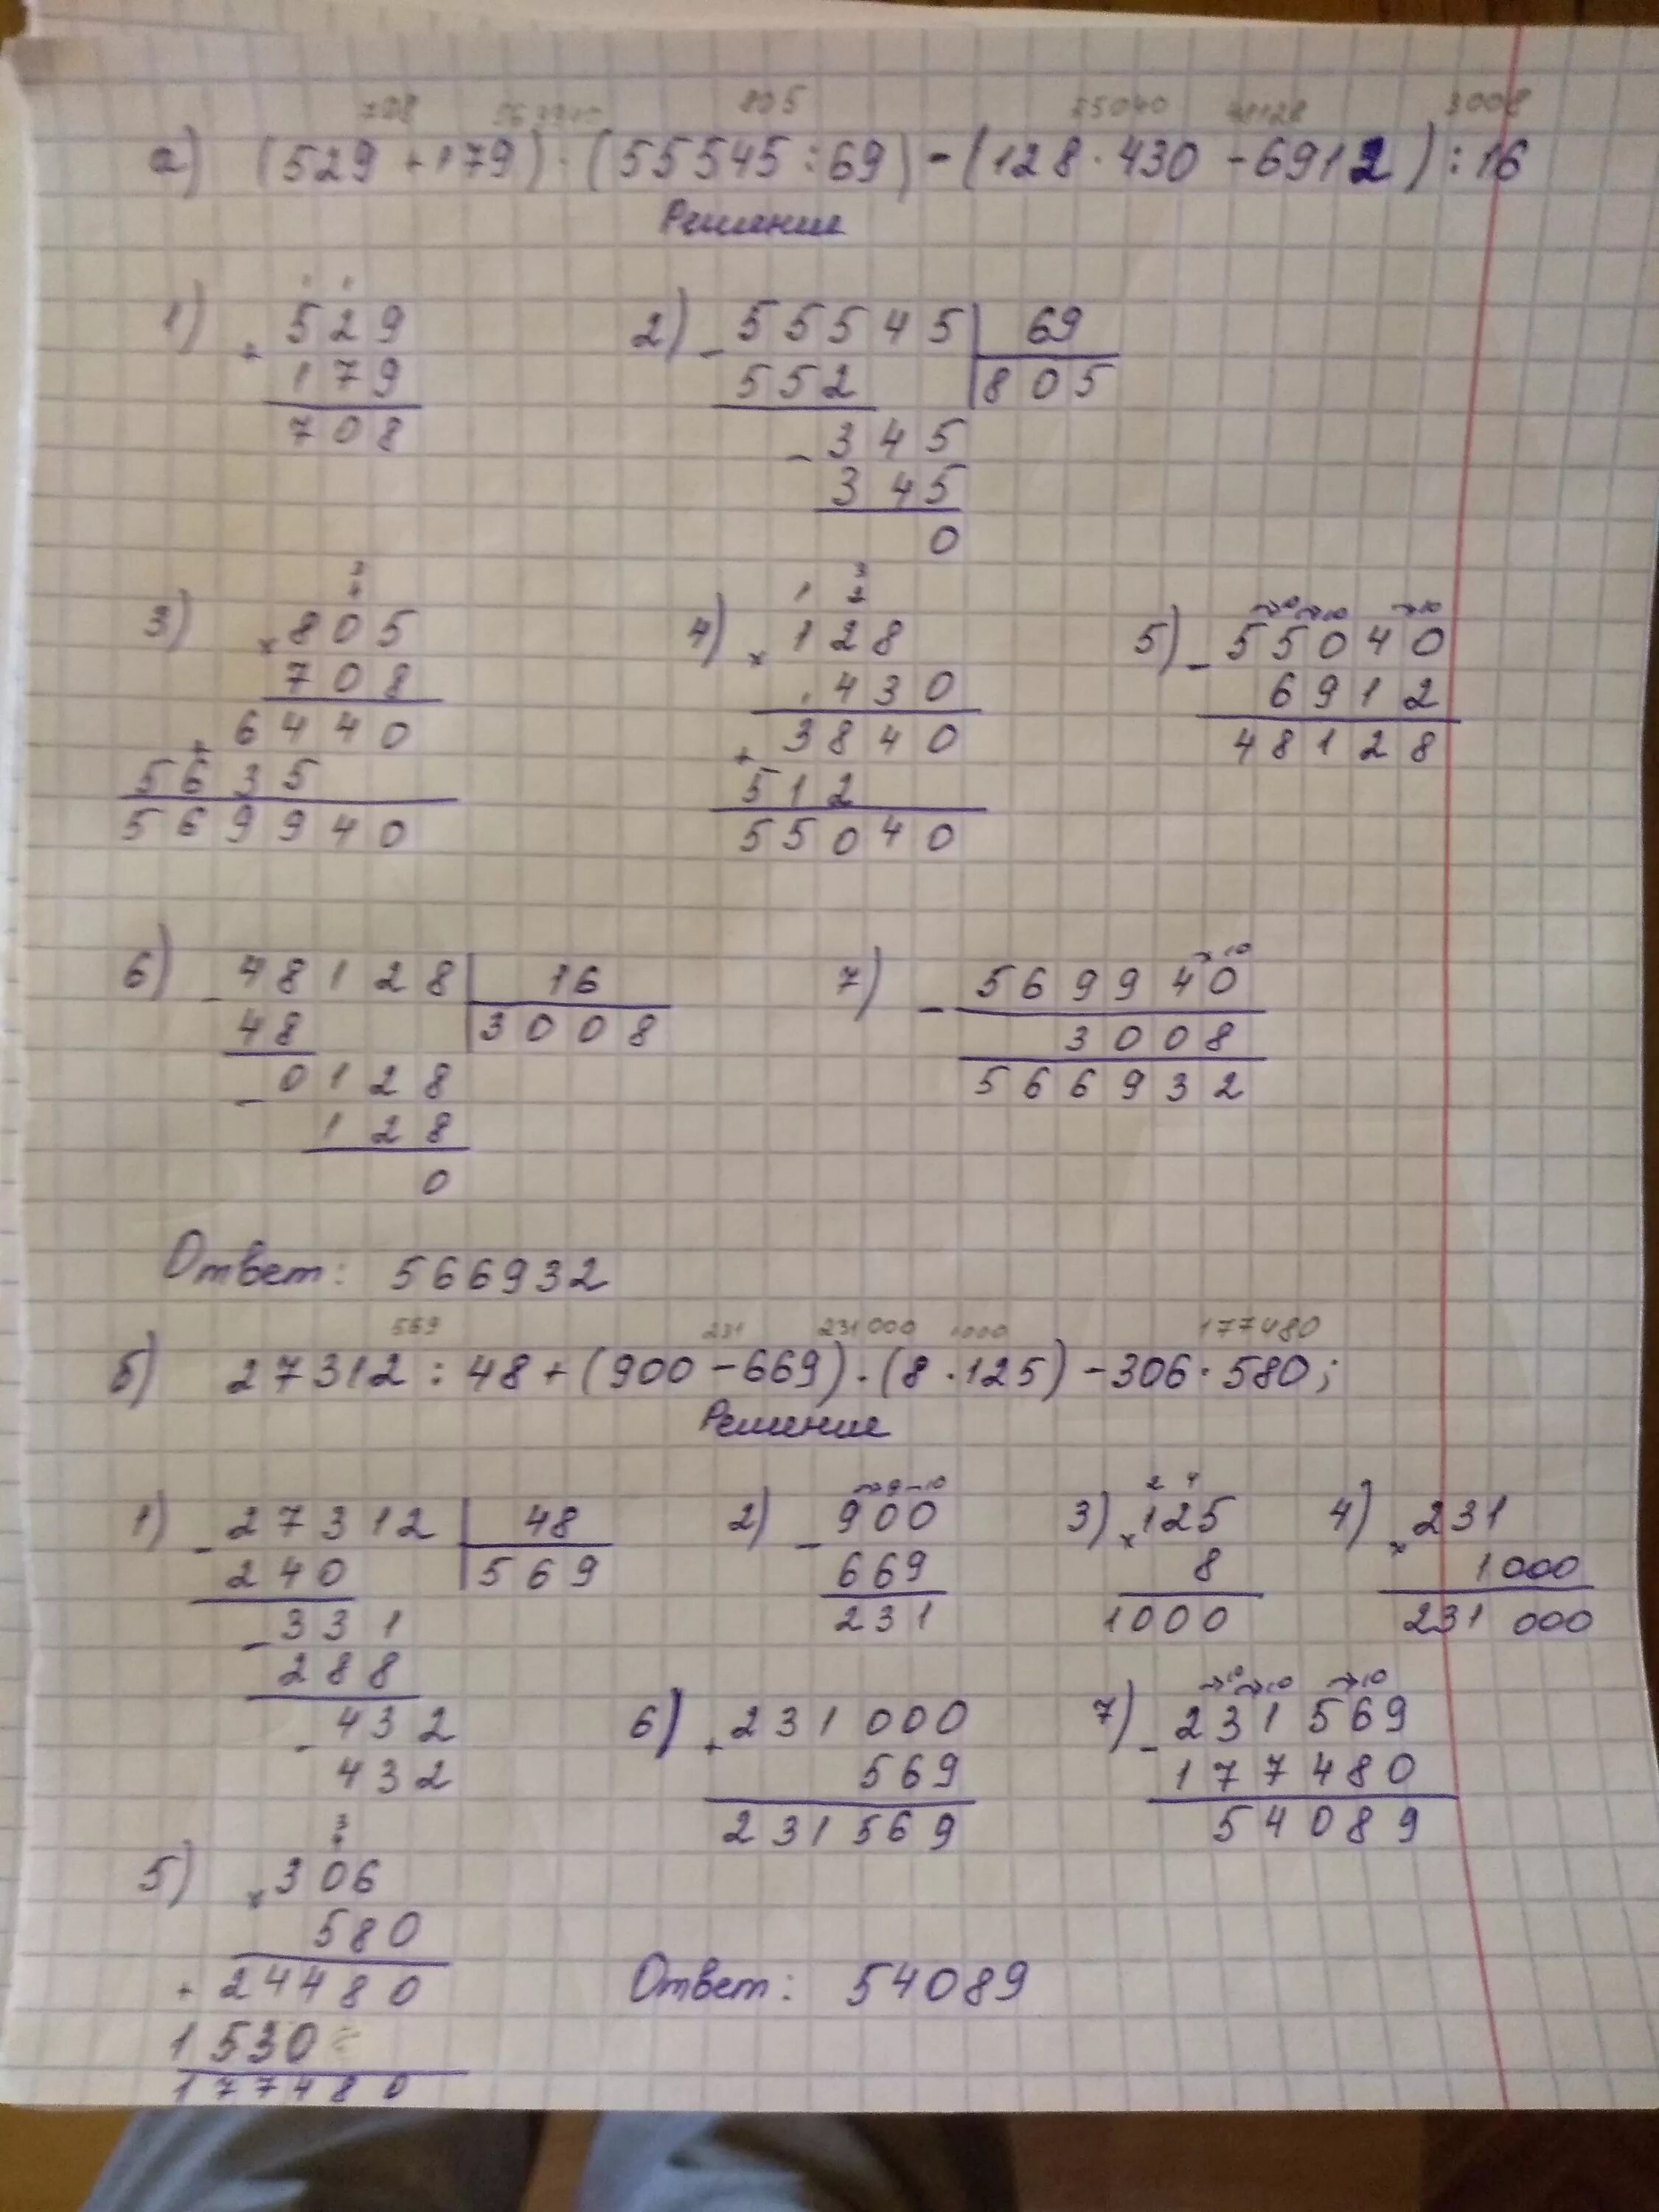 708 805 55040 48128 3008
а) (529 + 179) · (55545 : 69) - (128 · 430 - 6912) : 16
Решение
1) + 529
179
708
2) - 55545 | 69
552 | 805
- 345
345
0
3) × 805
708
+ 6440
5635
569940
4) × 128
430
+ 3840
512
55040
5) - 55040
6912
48128
6) - 48128 | 16
48 | 3008
- 0128
128
0
7) - 569940
3008
566932
Ответ: 566932
569 231 231000 1000 177480
б) 27312 : 48 + (900 - 669) · (8 · 125) - 306 · 580;
Решение
1) - 27312 | 48
240 | 569
- 331
288
- 432
432
2) - 900
669
231
3) × 125
8
1000
4) × 231
1000
231 000
5) × 306
580
+ 24480
1530
177480
6) + 231000
569
231569
7) - 231569
177480
54089
Ответ: 54089